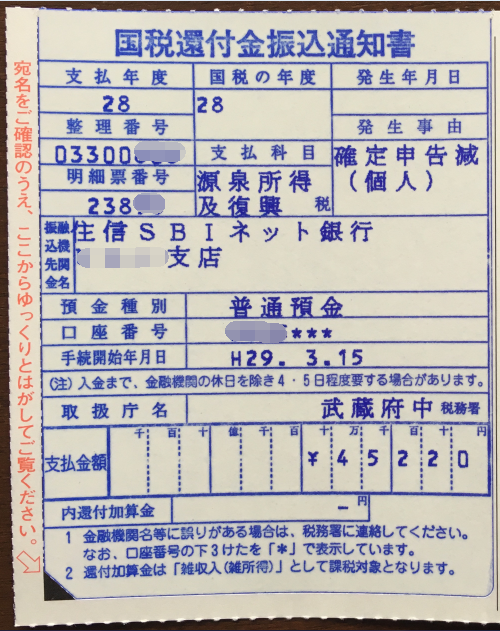 国税還付金振込通知書
支払年度 国税の年度 発生年月日
28 28
整理番号 発生事由
03300 支払科目 確定申告減
明細票番号 源泉所得 (個人)
238. 及復興 税
振込先 融機関金名 住信SBIネット銀行
支店
預金種別 普通預金
口座番号 ***
手続開始年月日 H29. 3.15
(注) 入金まで、金融機関の休日を除き4・5日程度要する場合があります。
取扱庁名 武蔵府中 税務署
千 百 十 億 千 百 十 万 千 百 十 円
支払金額 ¥45220
内還付加算金 - 円
1 金融機関名等に誤りがある場合は、税務署に連絡してください。
なお、口座番号の下3けたを「*」で表示しています。
2 還付加算金は「雑収入(雑所得)」として課税対象となります。
宛名をご確認のうえ、ここからゆっくりとはがしてご覧ください。